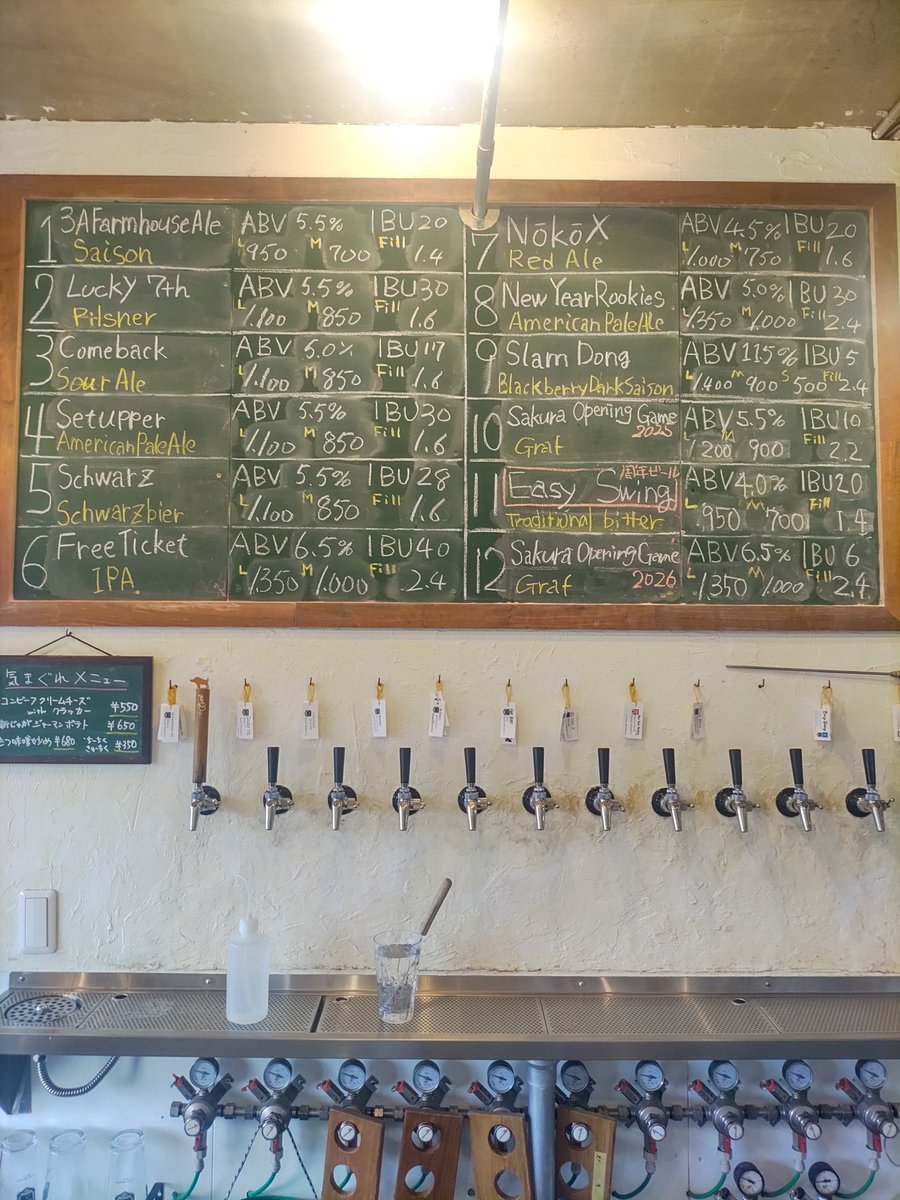 1 3A Farmhouse Ale ABV 5.5% IBU 20
Saison L 950 M 700 Fill 1.4
2 Lucky 7th ABV 5.5% IBU 30
Pilsner L 1.100 M 850 Fill 1.6
3 Comeback ABV 5.0% IBU 17
Sour Ale L 1.100 M 850 Fill 1.6
4 Setupper ABV 5.5% IBU 30
American Pale Ale L 1.100 M 850 Fill 1.6
5 Schwarz ABV 5.5% IBU 28
Schwarzbier L 1.100 M 850 Fill 1.6
6 Free Ticket ABV 6.5% IBU 40
IPA L 1.350 M 1.000 Fill 2.4
7 NōkōX ABV 4.5% IBU 20
Red Ale L 1.000 M 750 Fill 1.6
8 New Year Rookies ABV 5.0% IBU 30
American Pale Ale L 1.350 M 1.000 Fill 2.4
9 Slam Dong ABV 11.5% IBU 5
Blackberry Dark Saison L 1400 M 900 S 500 Fill 2.4
10 Sakura Opening Game 2025 ABV 5.5% IBU 10
Graf 1200 M 900 Fill 2.2
11 Easy Swing 周年ビール ABV 4.0% IBU 20
Traditional bitter L 950 M 700 Fill 1.4
12 Sakura Opening Game ABV 6.5% IBU 6
Graf 2026 L 1.350 M 1.000 Fill 2.4
気まぐれメニュー
コンビーフクリームチーズ
with クラッカー ¥550
新じゃがジャーマンポテト ¥650
もつ味噌炒め ¥680
¥350